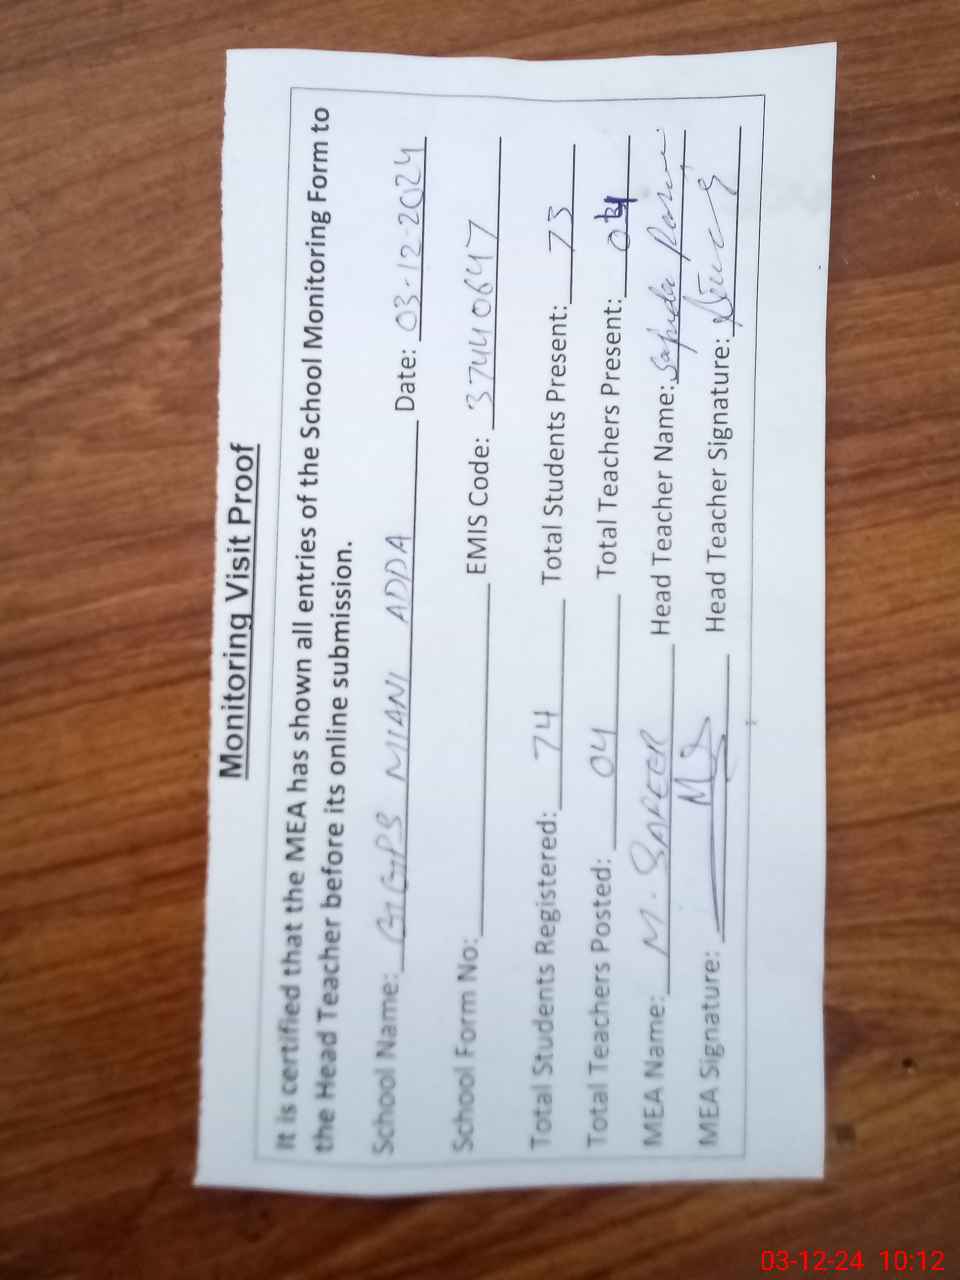 Monitoring Visit Proof
It is certified that the MEA has shown all entries of the School Monitoring Form to
the Head Teacher before its online submission.
School Name: GGPS MIANI ADDA Date: 03-12-2024
School Form No: EMIS Code: 37440647
Total Students Registered: 74 Total Students Present: 73
Total Teachers Posted: 04 Total Teachers Present:
MEA Name: M. SAFEER Head Teacher Name:
MEA Signature: Head Teacher Signature:
03-12-24 10:12